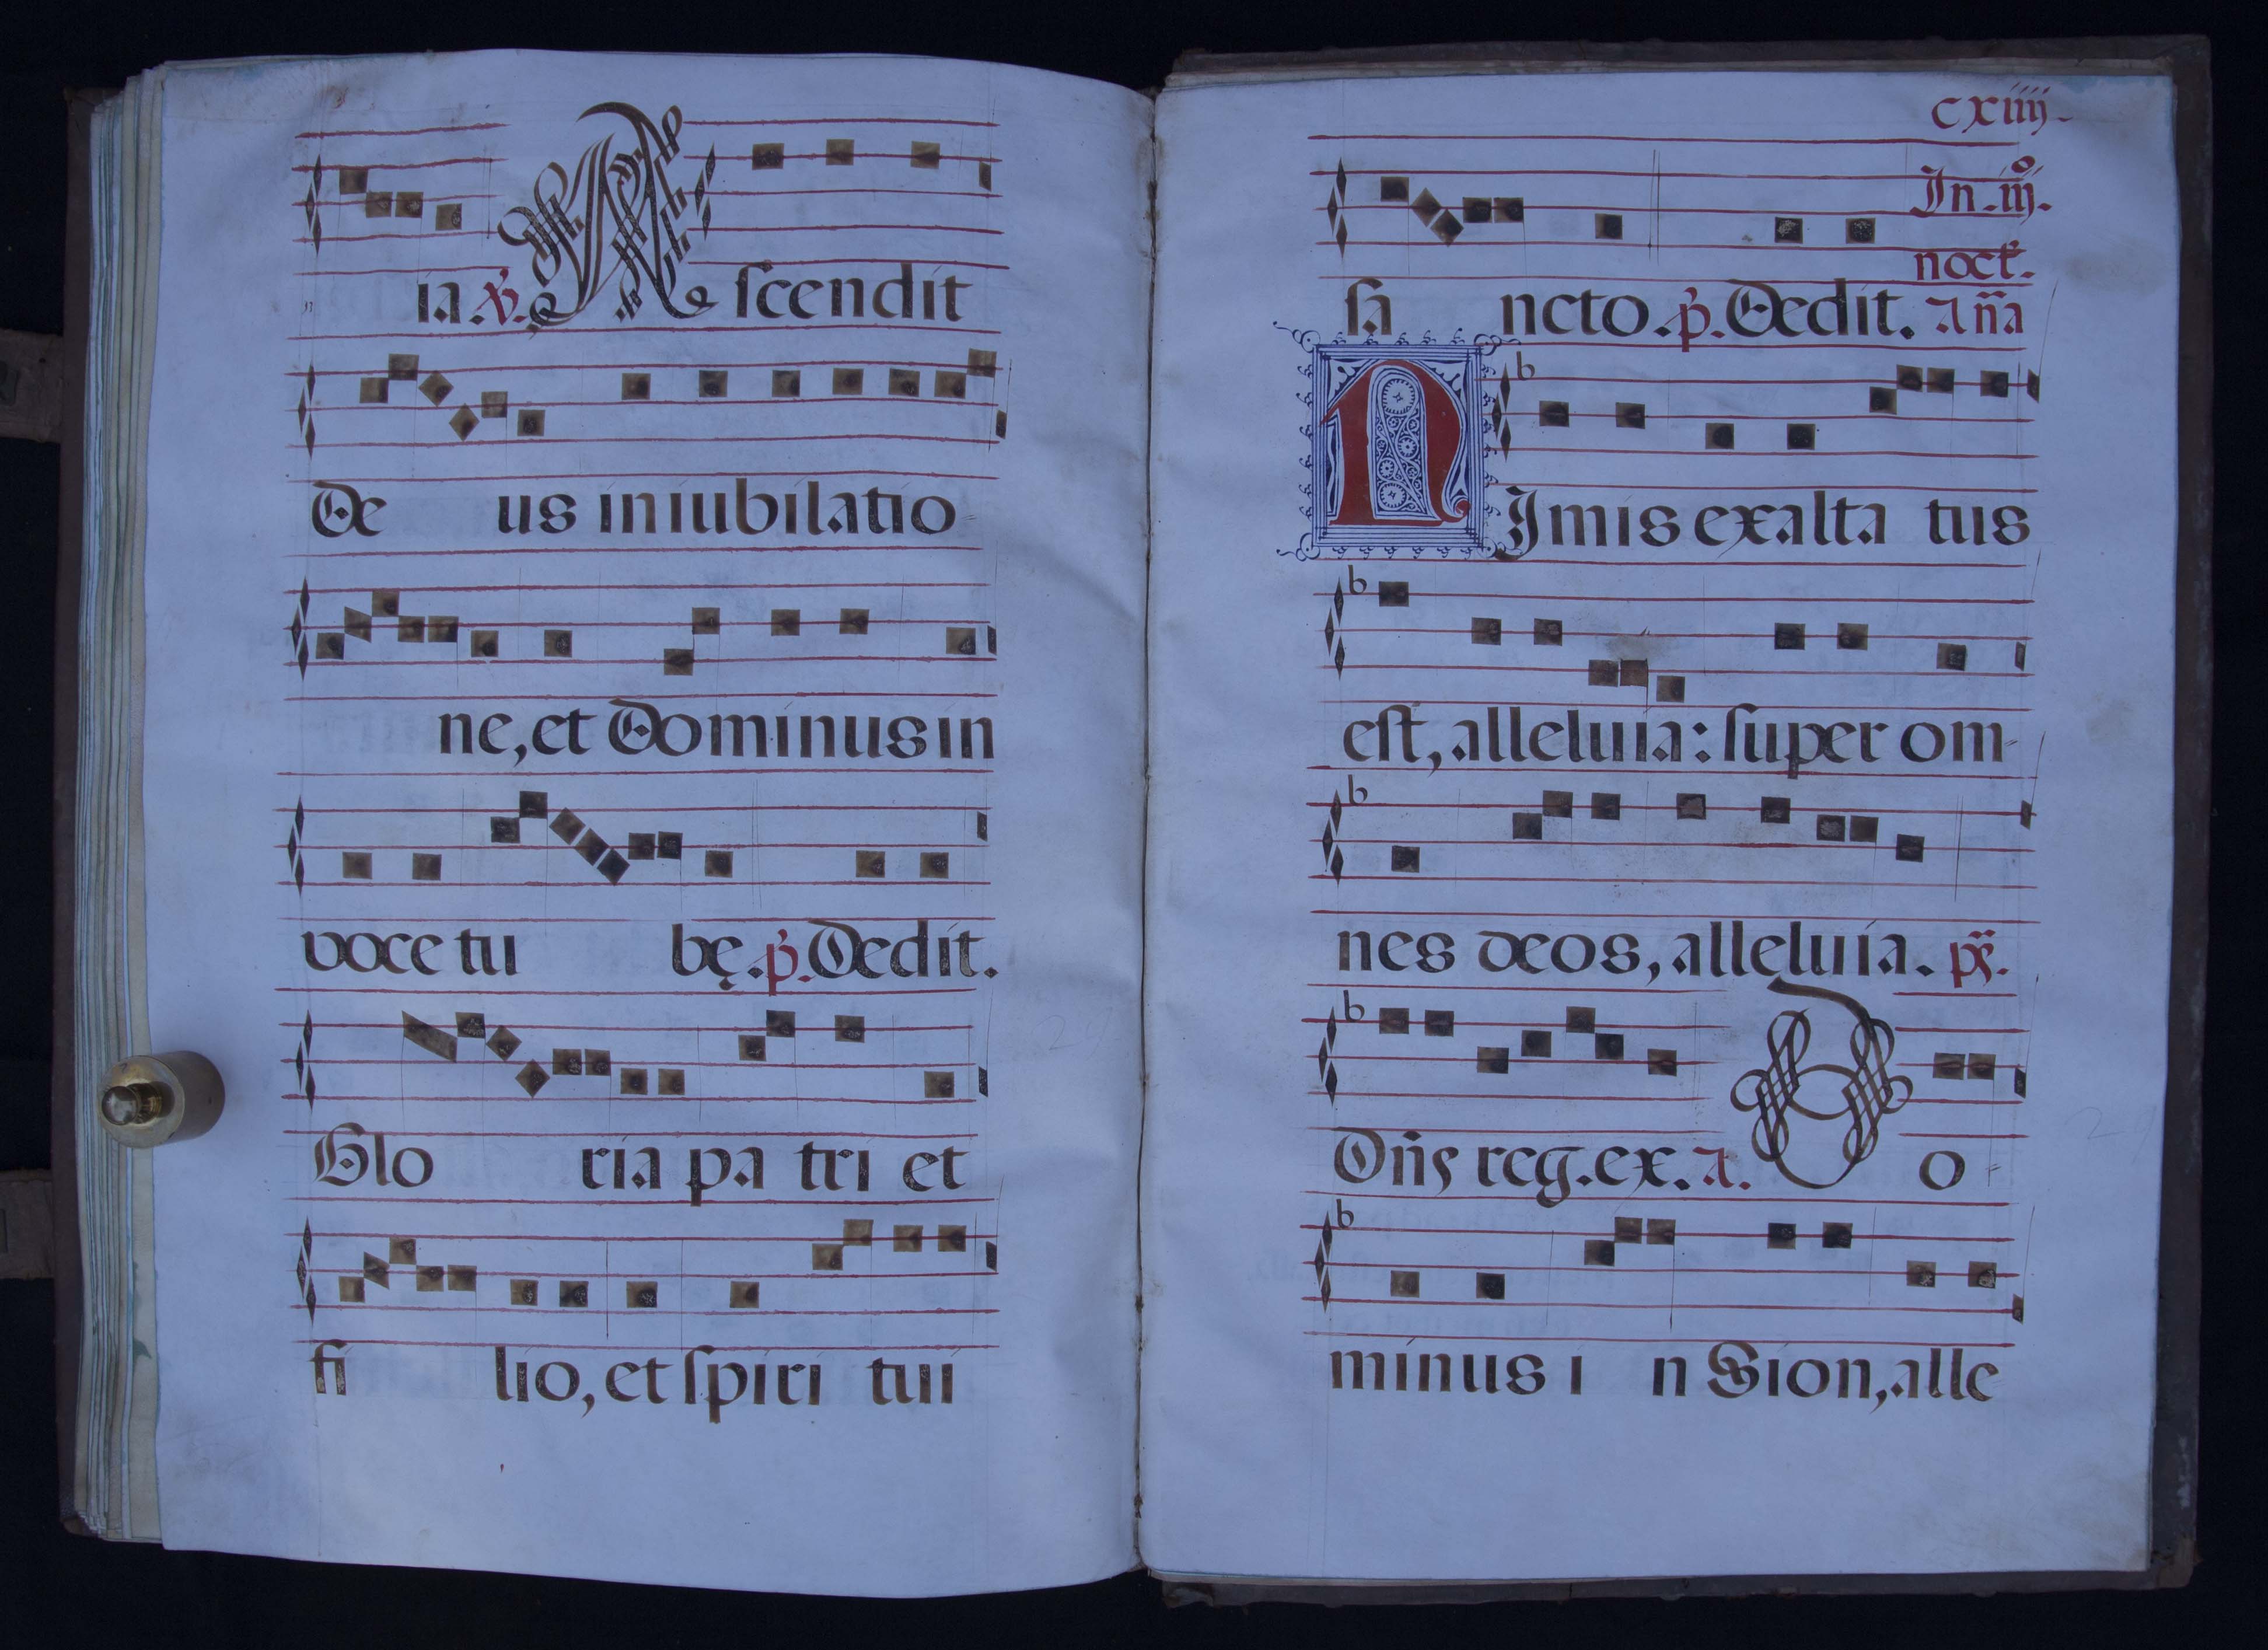 ia ℣. Ascendit
De us in iubilatio
ne, et Dominus in
voce tu bę. p̃. Dedit.
Glo ria pa tri et
fi lio, et spiri tui
cxiiij.
In .iij.º
noct̃.
sa ncto. p̃. Dedit. Añа
NImis exalta tus
est, alleluia: super om-
nes deos, alleluia. ps̃.
Dñs reg. ex. A. Do-
minus i n Sion, alle